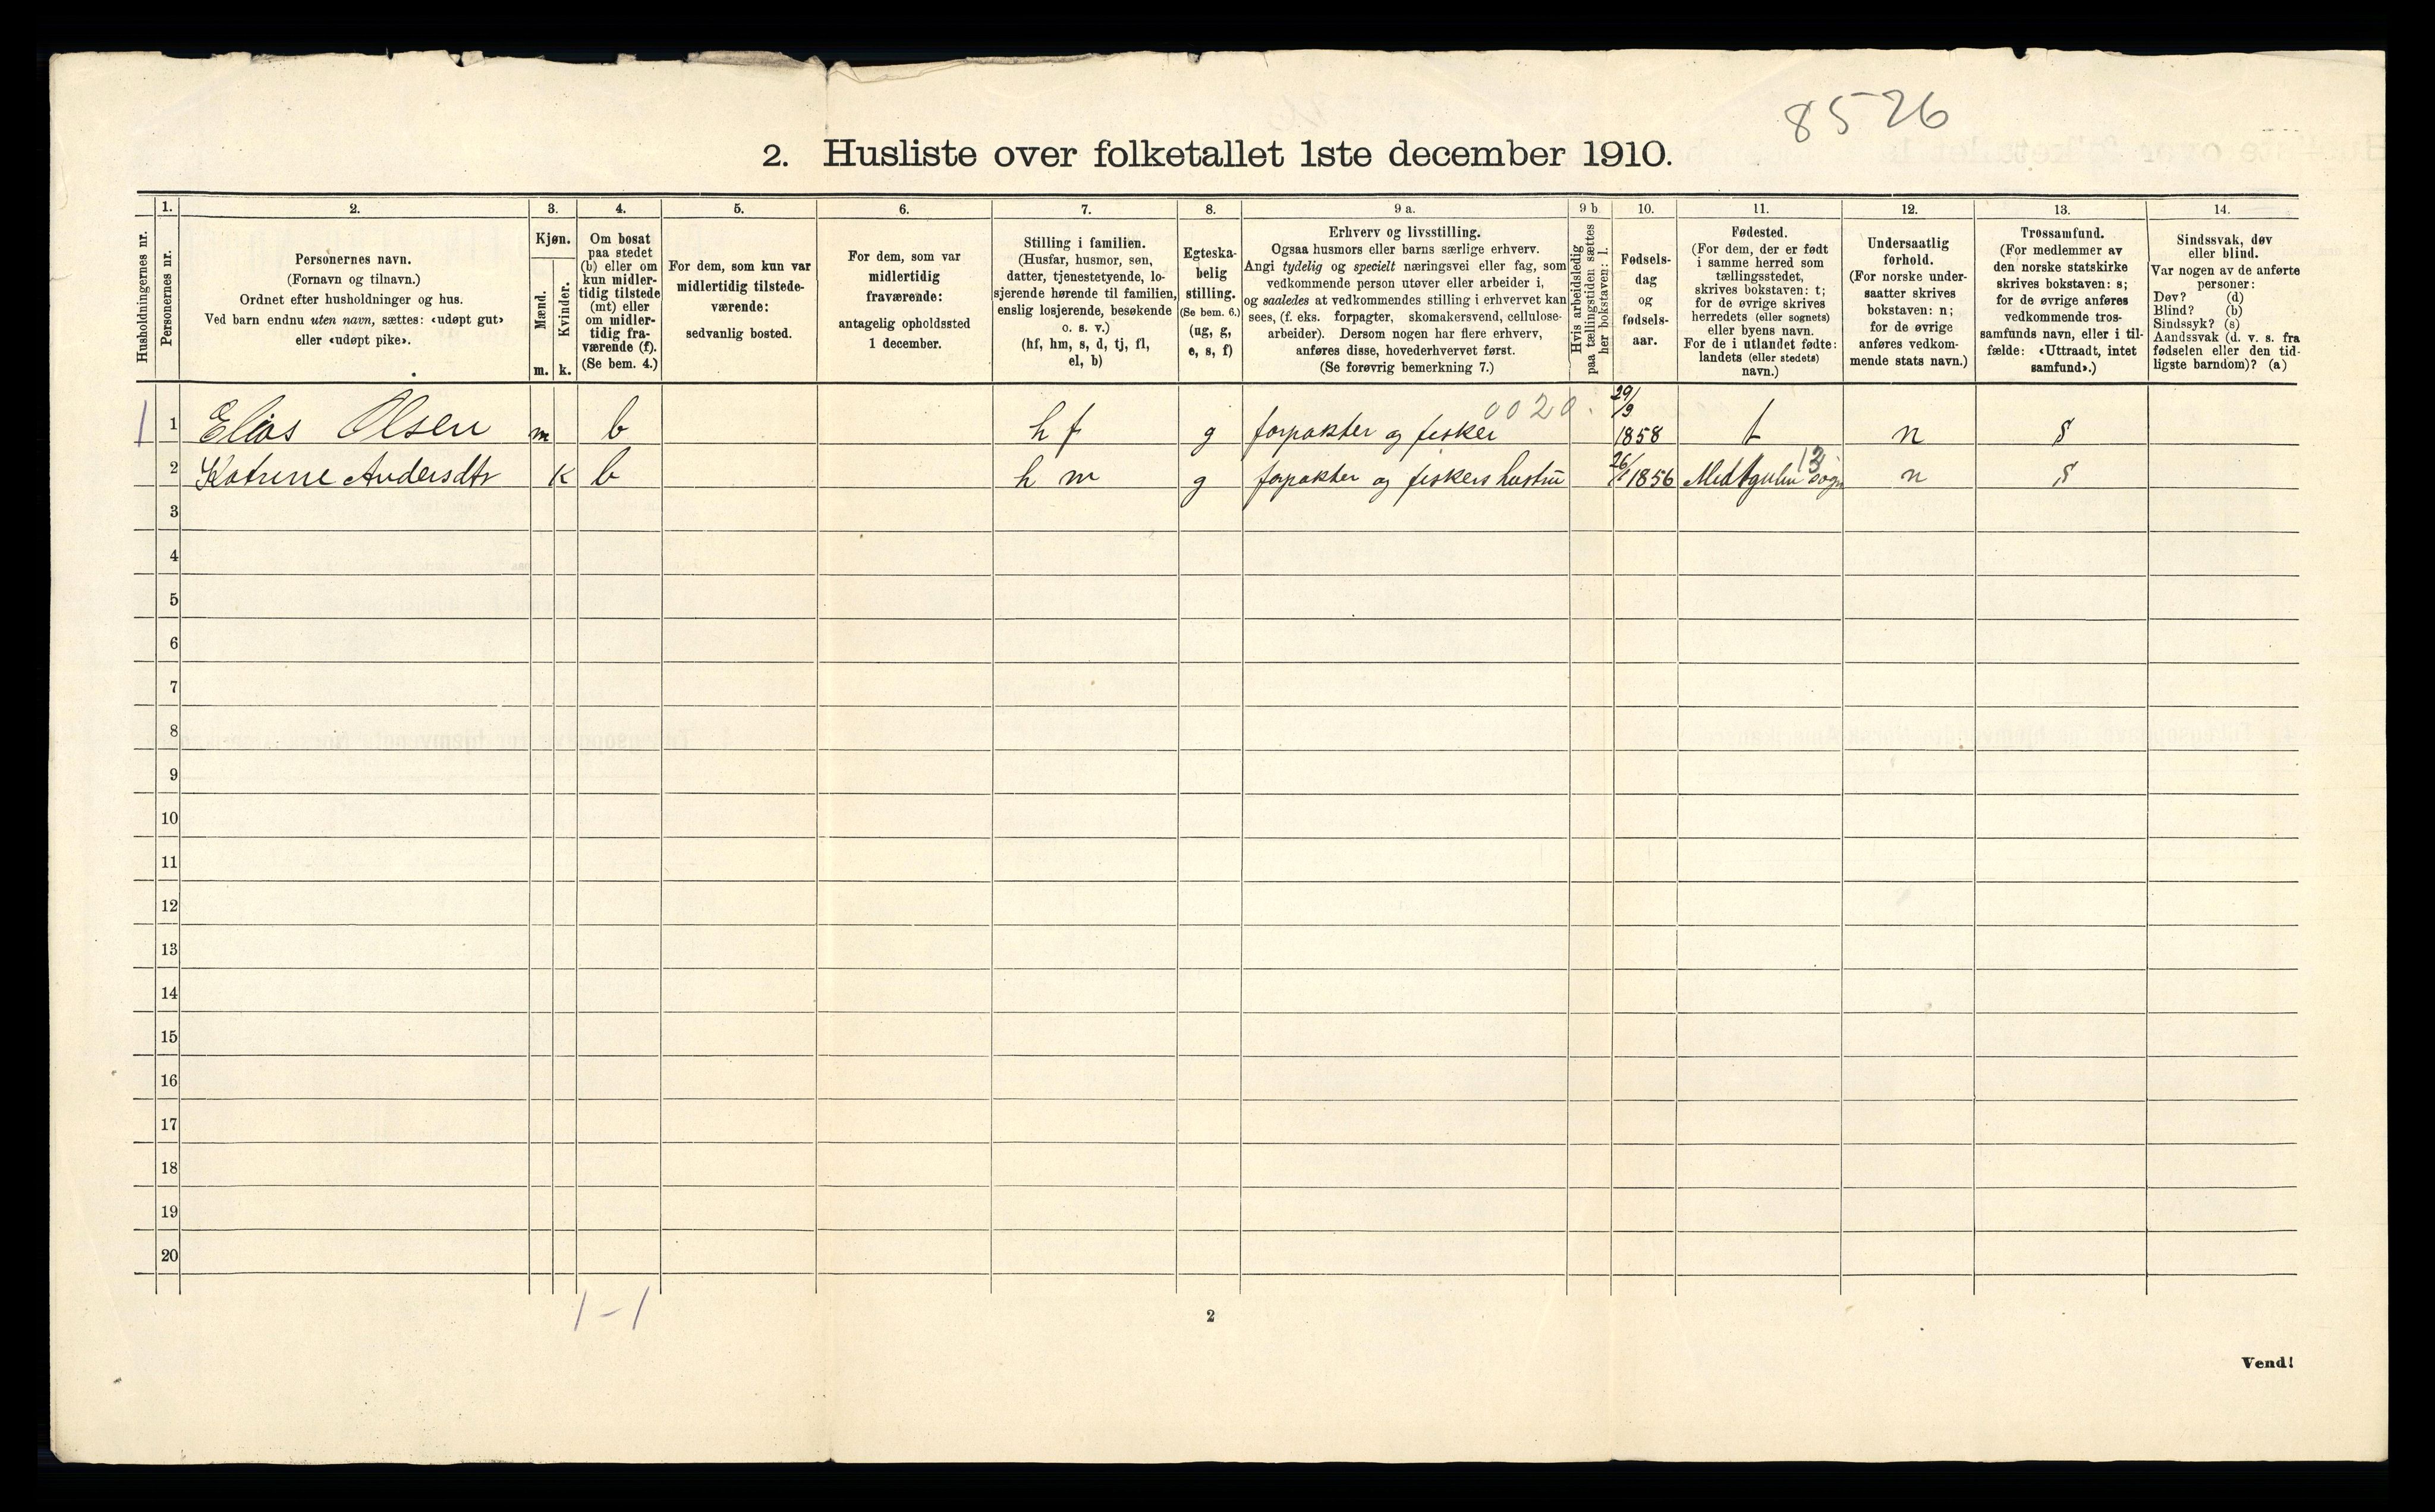 8526
2. Husliste over folketallet 1ste december 1910.
Husholdningernes nr.
1.
Personernes nr.
2.
Personernes navn.
(Fornavn og tilnavn.)
Ordnet efter husholdninger og hus.
Ved barn endnu uten navn, sættes: «udøpt gut»
eller «udøpt pike».
3.
Kjøn.
Mænd.
Kvinder.
m. k.
4.
Om bosat
paa stedet
(b) eller om
kun midler-
tidig tilstede
(mt) eller
om midler-
tidig fra-
værende (f).
(Se bem. 4.)
5.
For dem, som kun var
midlertidig tilstede-
værende:
sedvanlig bosted.
6.
For dem, som var
midlertidig
fraværende:
antagelig opholdssted
1 december.
7.
Stilling i familien.
(Husfar, husmor, søn,
datter, tjenestetyende, lo-
sjerende hørende til familien,
enslig losjerende, besøkende
o. s. v.)
(hf, hm, s, d, tj, fl,
el, b)
8.
Egteska-
belig
stilling.
(Se bem. 6.)
(ug, g,
e, s, f)
9 a.
Erhverv og livsstilling.
Ogsaa husmors eller barns særlige erhverv.
Angi tydelig og specielt næringsvei eller fag, som
vedkommende person utøver eller arbeider i,
og saaledes at vedkommendes stilling i erhvervet kan
sees, (f. eks. forpagter, skomakersvend, cellulose-
arbeider). Dersom nogen har flere erhverv,
anføres disse, hovederhvervet først.
(Se forøvrig bemerkning 7.)
9 b
Hvis arbeidsledig
paa tællingstiden sættes
her bokstaven: l.
10.
Fødsels-
dag
og
fødsels-
aar.
11.
Fødested.
(For dem, der er født
i samme herred som
tællingsstedet,
skrives bokstaven: t;
for de øvrige skrives
herredets (eller sognets)
eller byens navn.
For de i utlandet fødte:
landets (eller stedets)
navn.)
12.
Undersaatlig
forhold.
(For norske under-
saatter skrives
bokstaven: n;
for de øvrige
anføres vedkom-
mende stats navn.)
13.
Trossamfund.
(For medlemmer av
den norske statskirke
skrives bokstaven: s;
for de øvrige anføres
vedkommende tros-
samfunds navn, eller i til-
fælde: «Uttraadt, intet
samfund».)
14.
Sindssvak, døv
eller blind.
Var nogen av de anførte
personer:
Døv? (d)
Blind? (b)
Sindssyk? (s)
Aandssvak (d. v. s. fra
fødselen eller den tid-
ligste barndom)? (a)
0020.
1 1 Elias Olsen m b h f g forpakter og fisker 29/9 1858 t n s
13
2 Katrine Andersdtr k b h m g forpakter og fiskers hustru 26/1 1856 sogn n s
3
4
5
6
7
8
9
10
11
12
13
14
15
16
17
18
19
20
1-1
2
Vend!